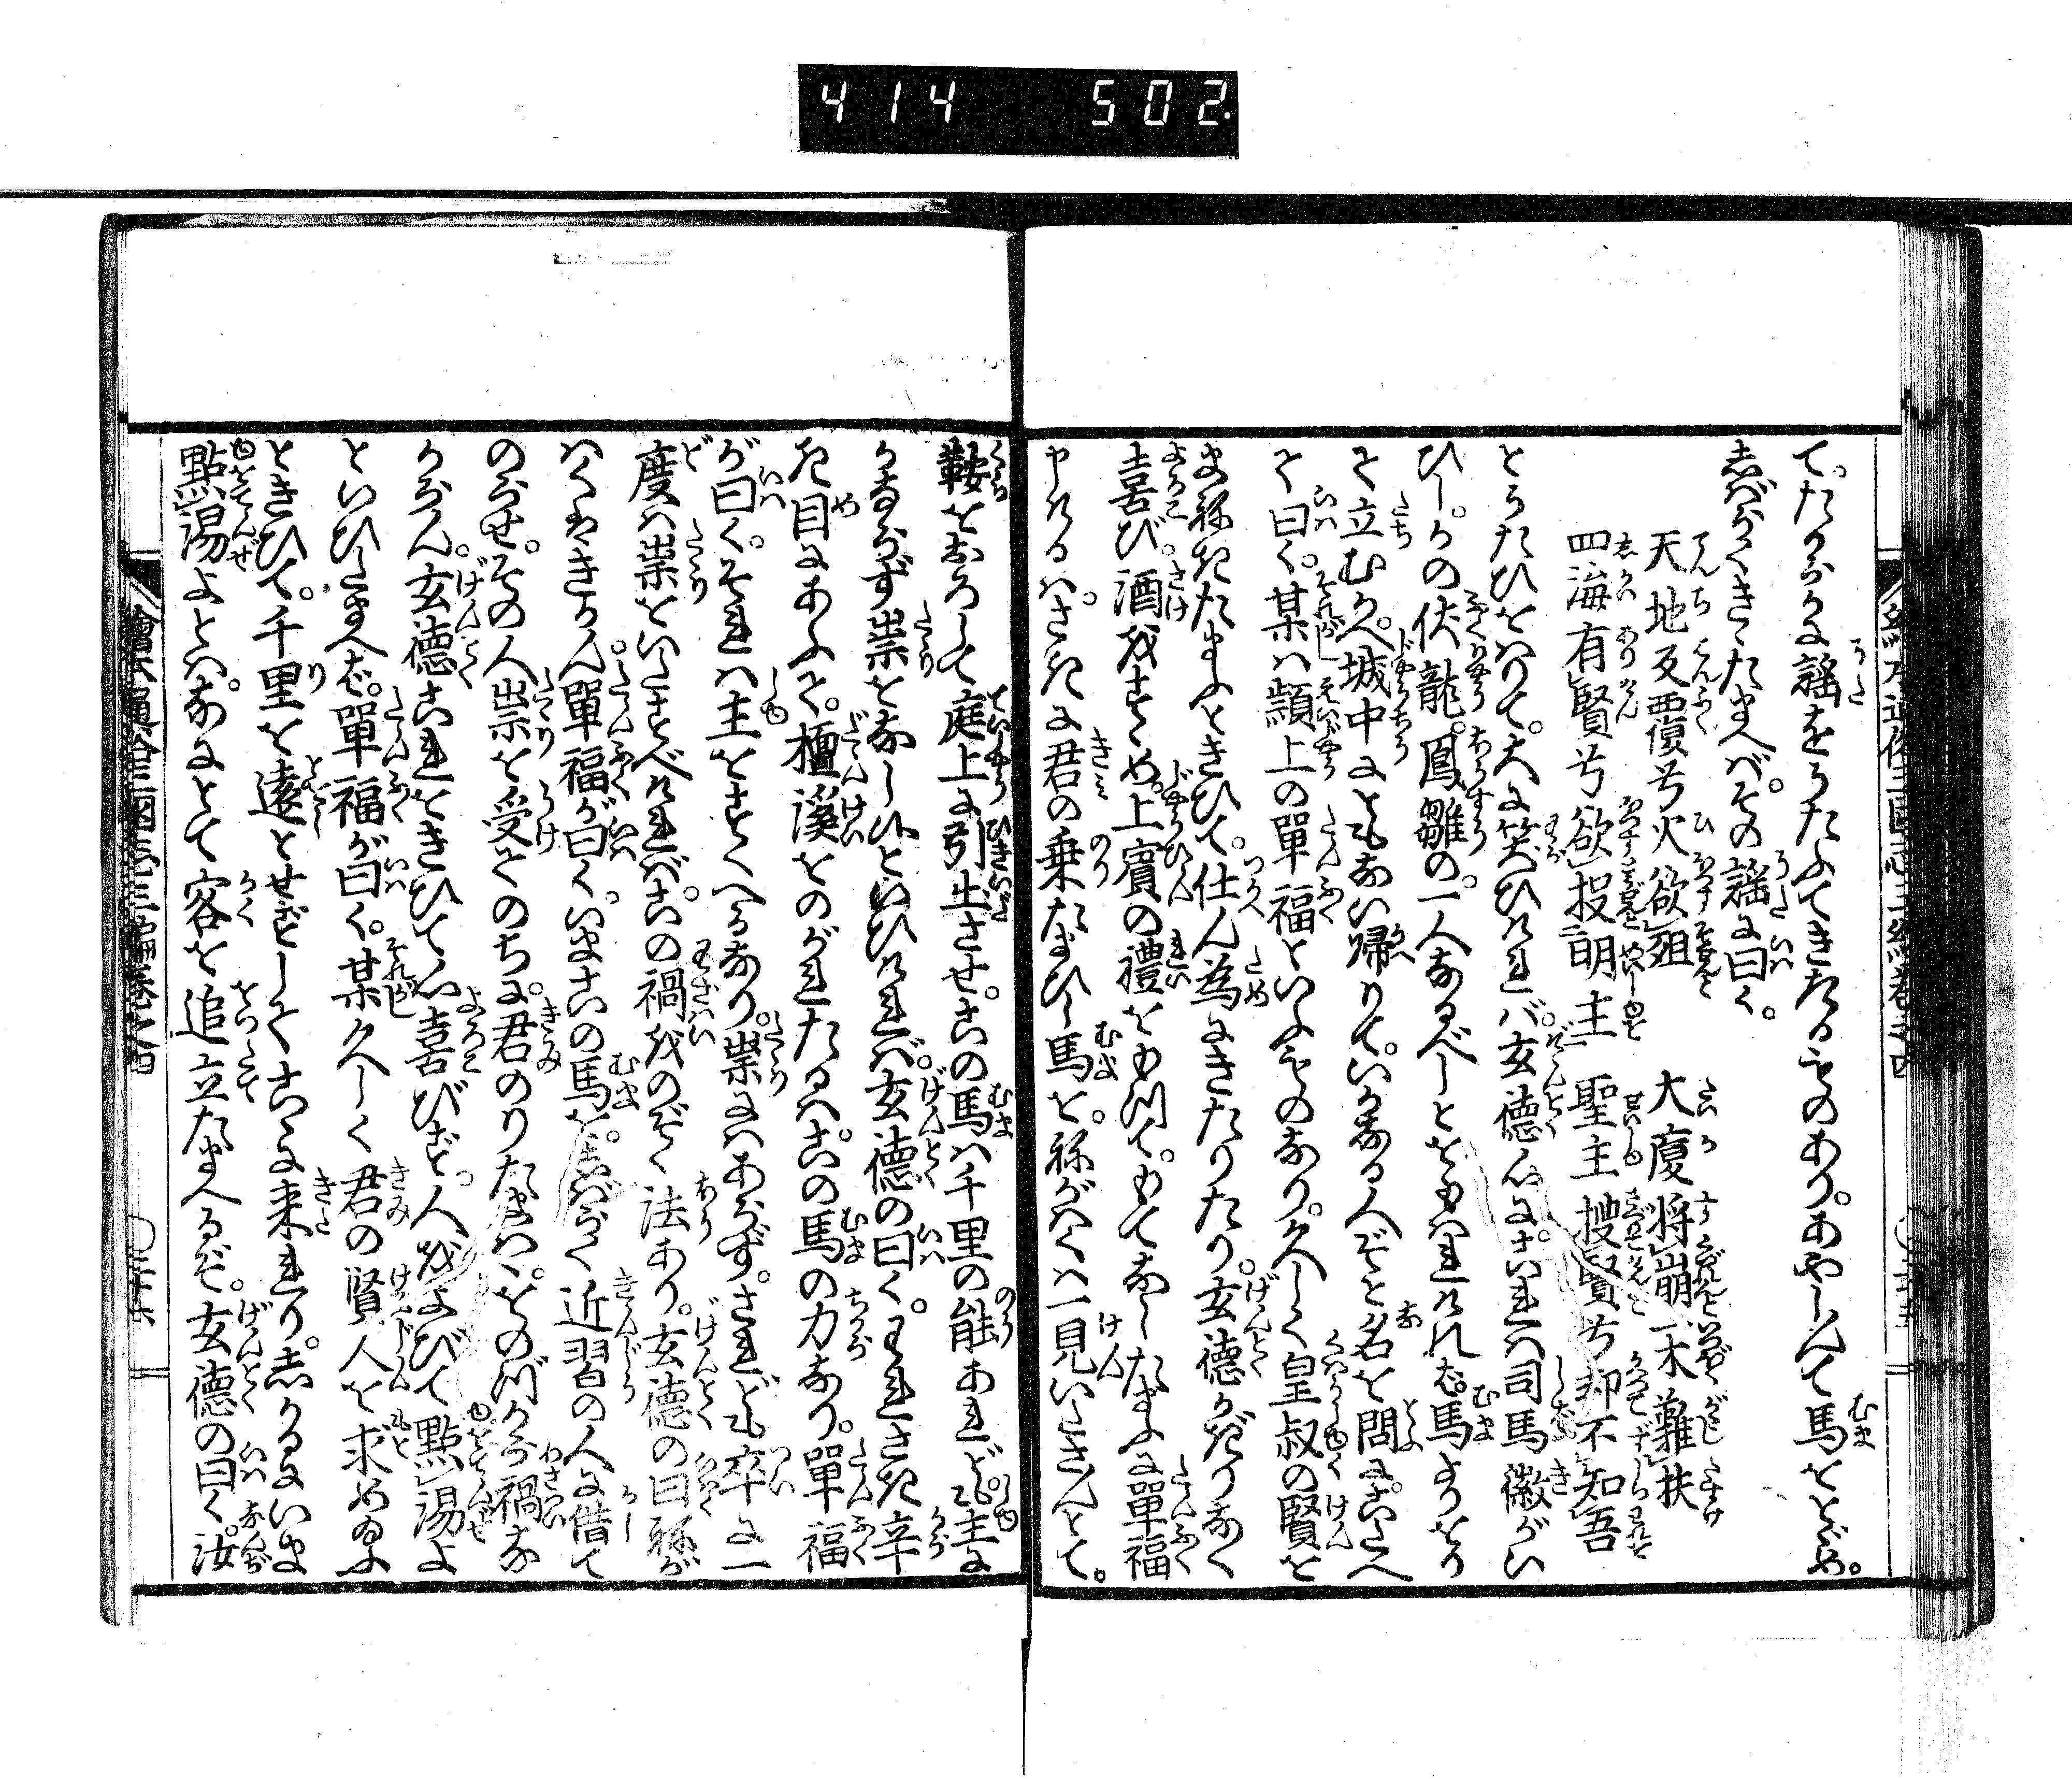 414 502
て。たからかに謡をうたふてきたるものあり。あやしんて馬をとゞめ。
志ばらくきゝたまへば。その謡に曰く。
天地反覆兮火欲殂 大廈将崩一木難扶
四海有賢兮欲投明主 聖主捜賢兮却不知吾
とうたひをハりて。大に笑ひけれバ。玄徳心に。これハ司馬徽がい
ひし。かの伏龍。鳳雛の。一人なるべしとをもハれけれバ。馬よりをり
て立むかへ。城中にともなひ帰りて。いかなる人ぞと名を問にこたへ
て曰く。某ハ潁上の單福といふものなり。久しく皇叔の賢を
まねきたまふときひて。仕ん為にきたりたり。玄徳かぎりなく
喜び。酒をすゝめ。上賓の禮をもつて。もてなしたまふに單福
申けるハ。さきに君の乗たまひし馬を。ねがハくハ一見いたさんとて。
鞍をおろして庭上に引出させ。この馬ハ千里の能あれども主に
かならず祟をなし候といひけれバ。玄徳の曰く。われさき辛
き目にあふて。檀溪をのがれたるハ。この馬の力なり。單福
が曰く。それハ主をすくへるなり。祟にハあらず。されども卒に一
度ハ祟をいたすべけれバ。この禍をのぞく法あり。玄徳の曰ねが
ハくハきかん。單福が曰く。いまこの馬を。志ばらく近習の人に借て
のらせ。その人祟を受てのち。に君のりたまハゞ。をのづから禍な
からん。玄徳これをきひて心喜びず。人をよびて點湯よ
といひたまへバ。單福が曰く。某久しく君の賢人を求めるよ
ときひて。千里を遠とせずしてこゝに来れり。志かるにいま
點湯よとハ。なにとて客を追立たまへるぞ。玄徳の曰く。汝
繪本通俗三國志三編巻之四